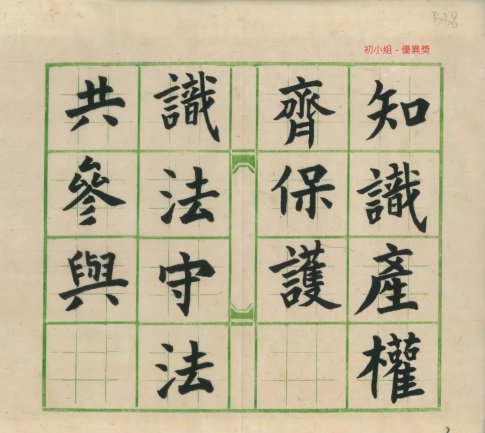 B38
初小組 - 優異獎
知識產權
齊保護
識法守法
共參與